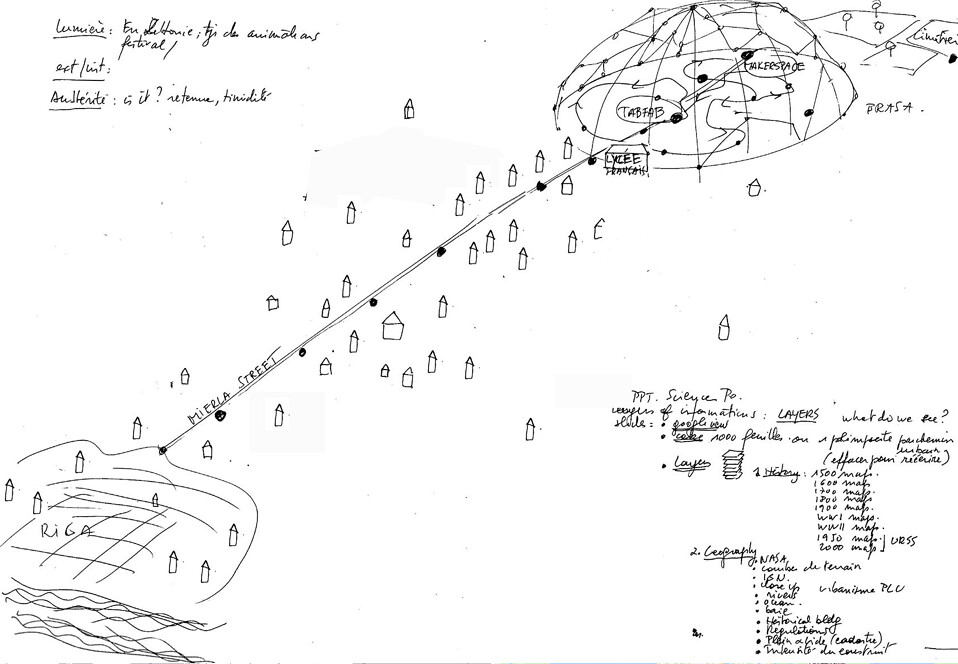 Lumière : En Lettonie, tjs des animations
festival/
ext/int :
Austérité : is it ? retenue, timidité
MAKERSPACE
TABFAB
LYCEE
FRANÇAIS
BRASA.
MIERLA STREET
RIGA
PPT. Science Po.
of informations : LAYERS what do we see ?
slides : • google view
• 1000 feuilles ou 1 palimpseste parchemin
urbain
(effacer pour réécrire)
• Layers
1. History : 1500 maps.
1600 maps
1700 maps.
1800 maps
1900 maps.
WWI maps.
WWII maps.
1950 maps ] URSS
2000 maps
2. Geography
• NASA
• courbe de terrain
• IGN.
• close up urbanisme PLU
• rivers
• ocean.
• baie
• Historical bldg
• Regulations
• Plein a vide (cadastre)
• Intensité du construit